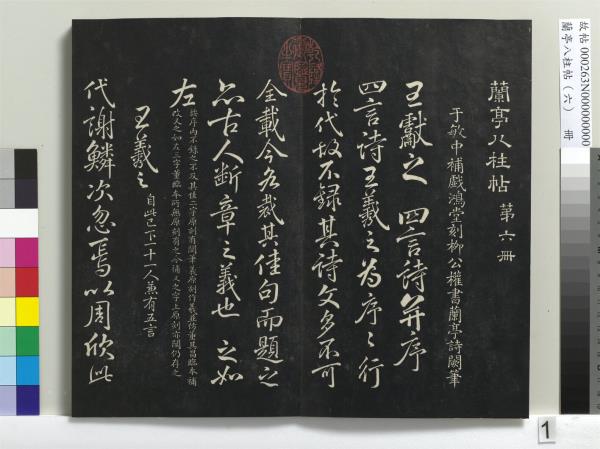 蘭亭八柱帖 第六冊
于敏中補戲鴻堂刻柳公權書蘭亭詩闕筆
王獻之 四言詩并序
四言詩王羲之為序序行
於代故不錄其詩文多不可
全載今各裁其佳句而題之
亦古人斷章之義也 之如
左
王羲之 自此已下十一人兼有五言
代謝鱗次忽焉以周欣此
故帖 000263N000000000
蘭亭八柱帖（六） 冊
1